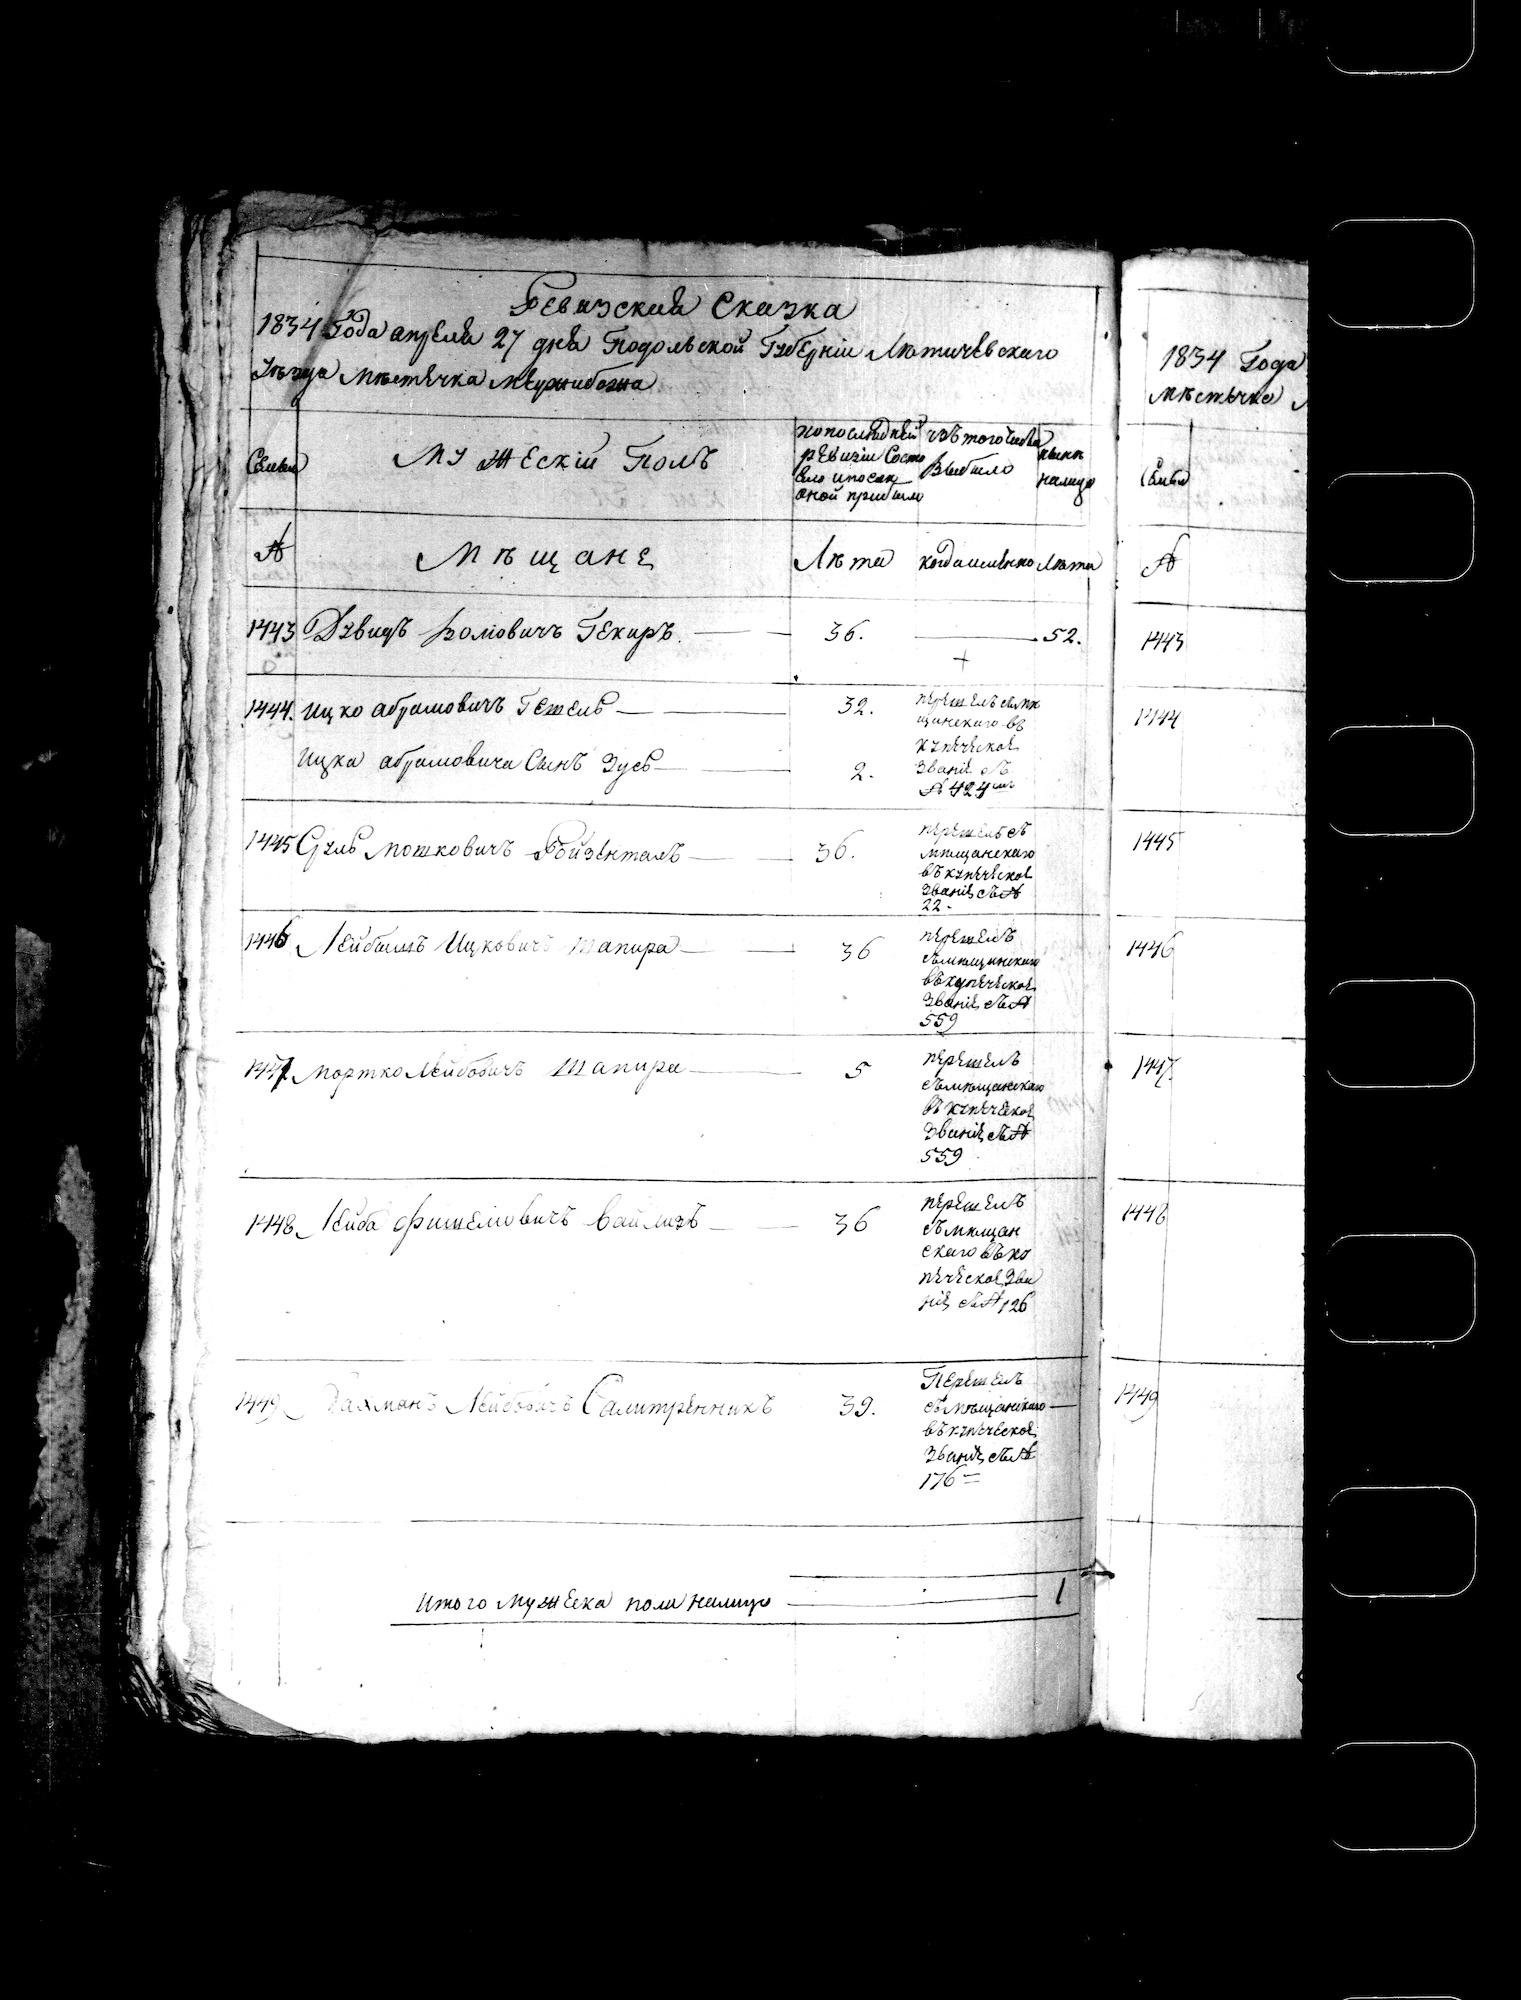 Ревизская Сказка
1834 Года апреля 27 дня Подольской Губерніи Летичевскаго
Уезда Местечка Меджибожа
Семьи
Мужескій Полъ
по последней
ревизіи Состо
яло и после
оной прибыло
изъ того числа
Выбыло
ныне
налицо
№
Мещане
Лета
когда именно
Лета
1443
Давидъ
36.
52.
1444.
Ицко Абрамовичъ
32.
перешелъ съ ме
щанскаго въ
купеческое
Званіе съ
№ 424
Ицка Абрамовича Сынъ Зусь
2.
1445
Сруль Мошковичъ Ройзенталъ
36.
перешелъ съ
мещанскаго
въ купеческое
Званіе съ №
22.
1446
Лейбишъ Ицковичъ Шапира
36
перешелъ
съ мещанскаго
въ купеческое
Званіе съ №
559
1447
Мортко Лейбовичъ Шапира
5
перешелъ
съ мещанскаго
въ купеческое
Званіе съ №
559
1448
Лейба Фишелиовичъ
36
перешелъ
съ мещан
скаго въ ку
печеское Зва
ніе съ № 126
1449
Рахманъ Лейбовичъ Салитренникъ
39.
Перешелъ
съ мещанскаго
въ купеческое
Званіе съ №
176
Итого Мужеска пола налицо
1
1834 Года
местечка
Семьи
№
1443
1444
1445
1446
1447.
1448
1449